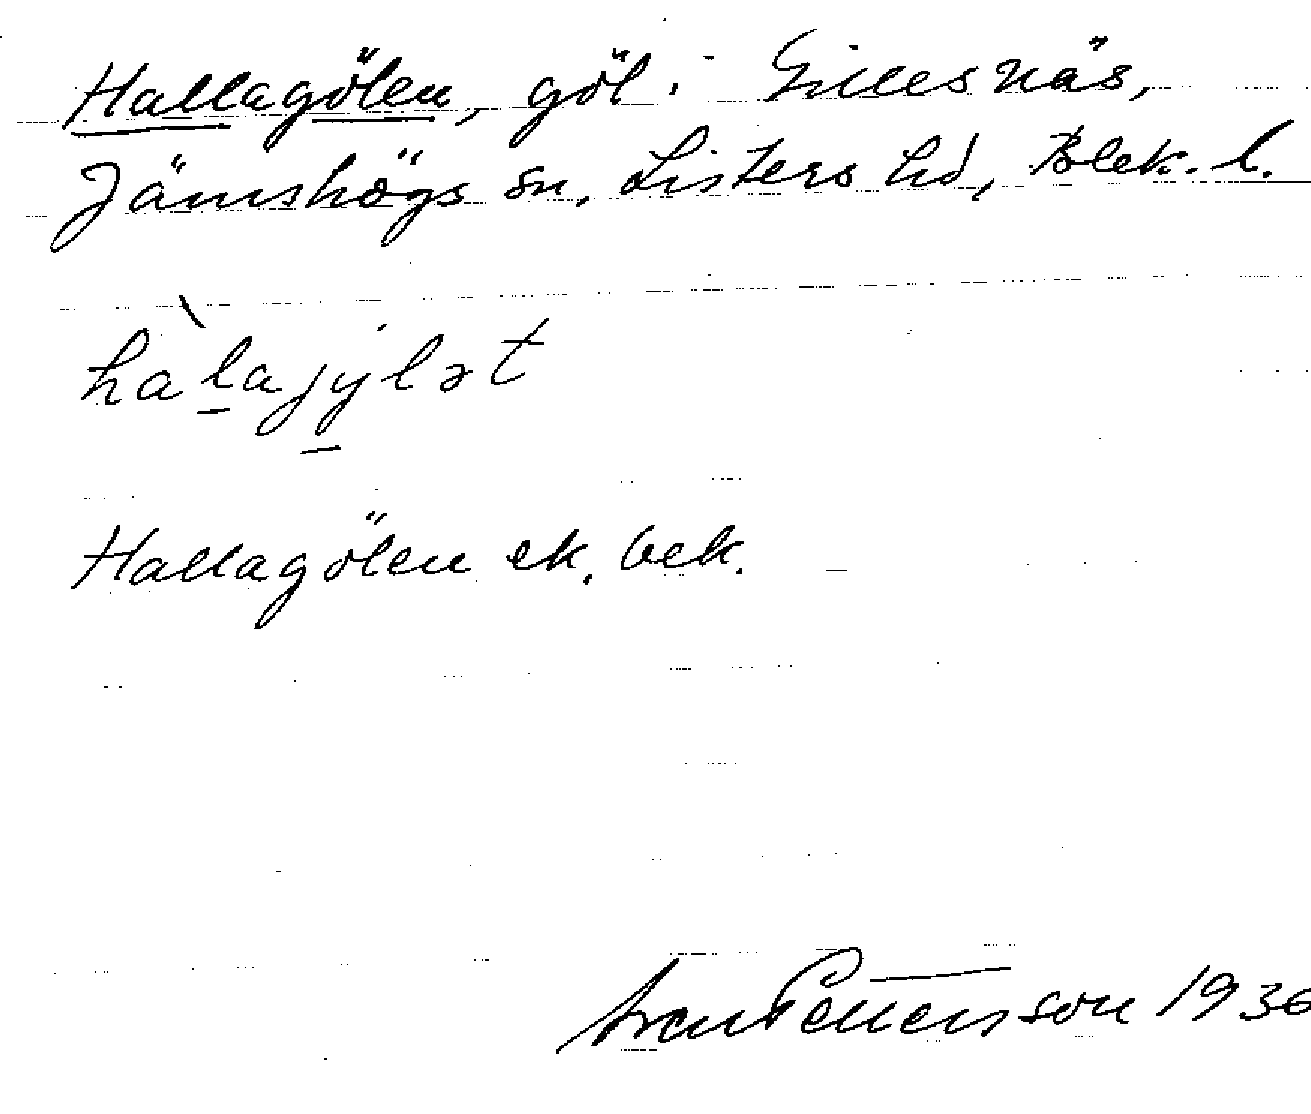 Hallagölen, göl i Gillesnäs,
Jämshögs sn, Listers hd, Blek. l.
hàlajylət
Hallagölen ek. bek.
Pettersson 1936